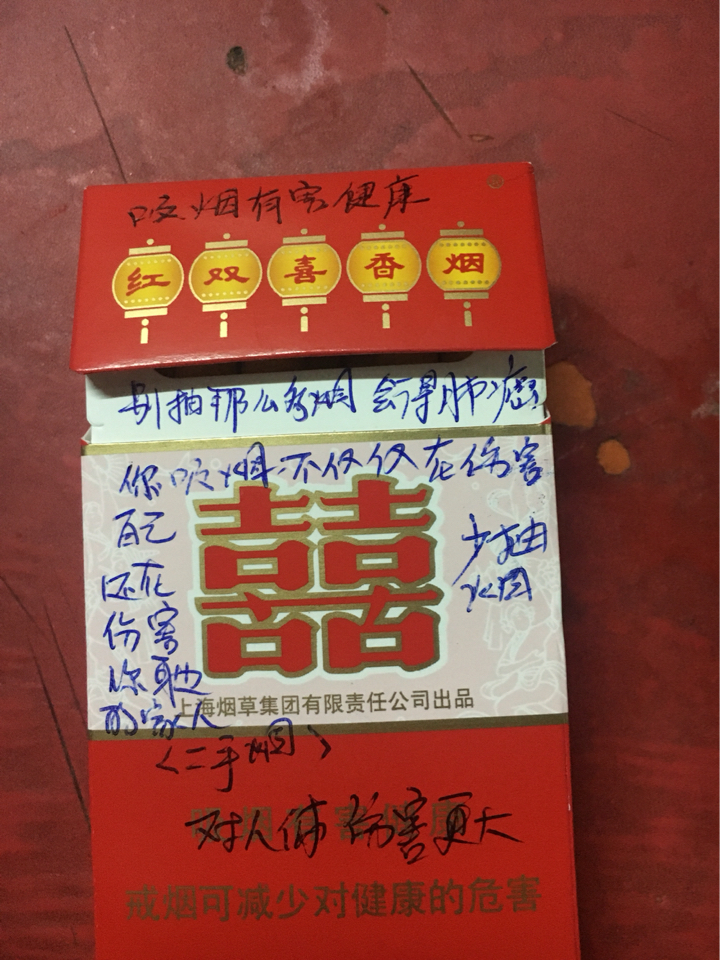 吸烟有害健康
红双喜香烟
别抽那么多烟 会得肺癌
你吸烟不仅仅在伤害
自己
还在
伤害
你其他
的家人
少抽
烟
上海烟草集团有限责任公司出品
<二手烟>
对人体伤害更大
戒烟可减少对健康的危害